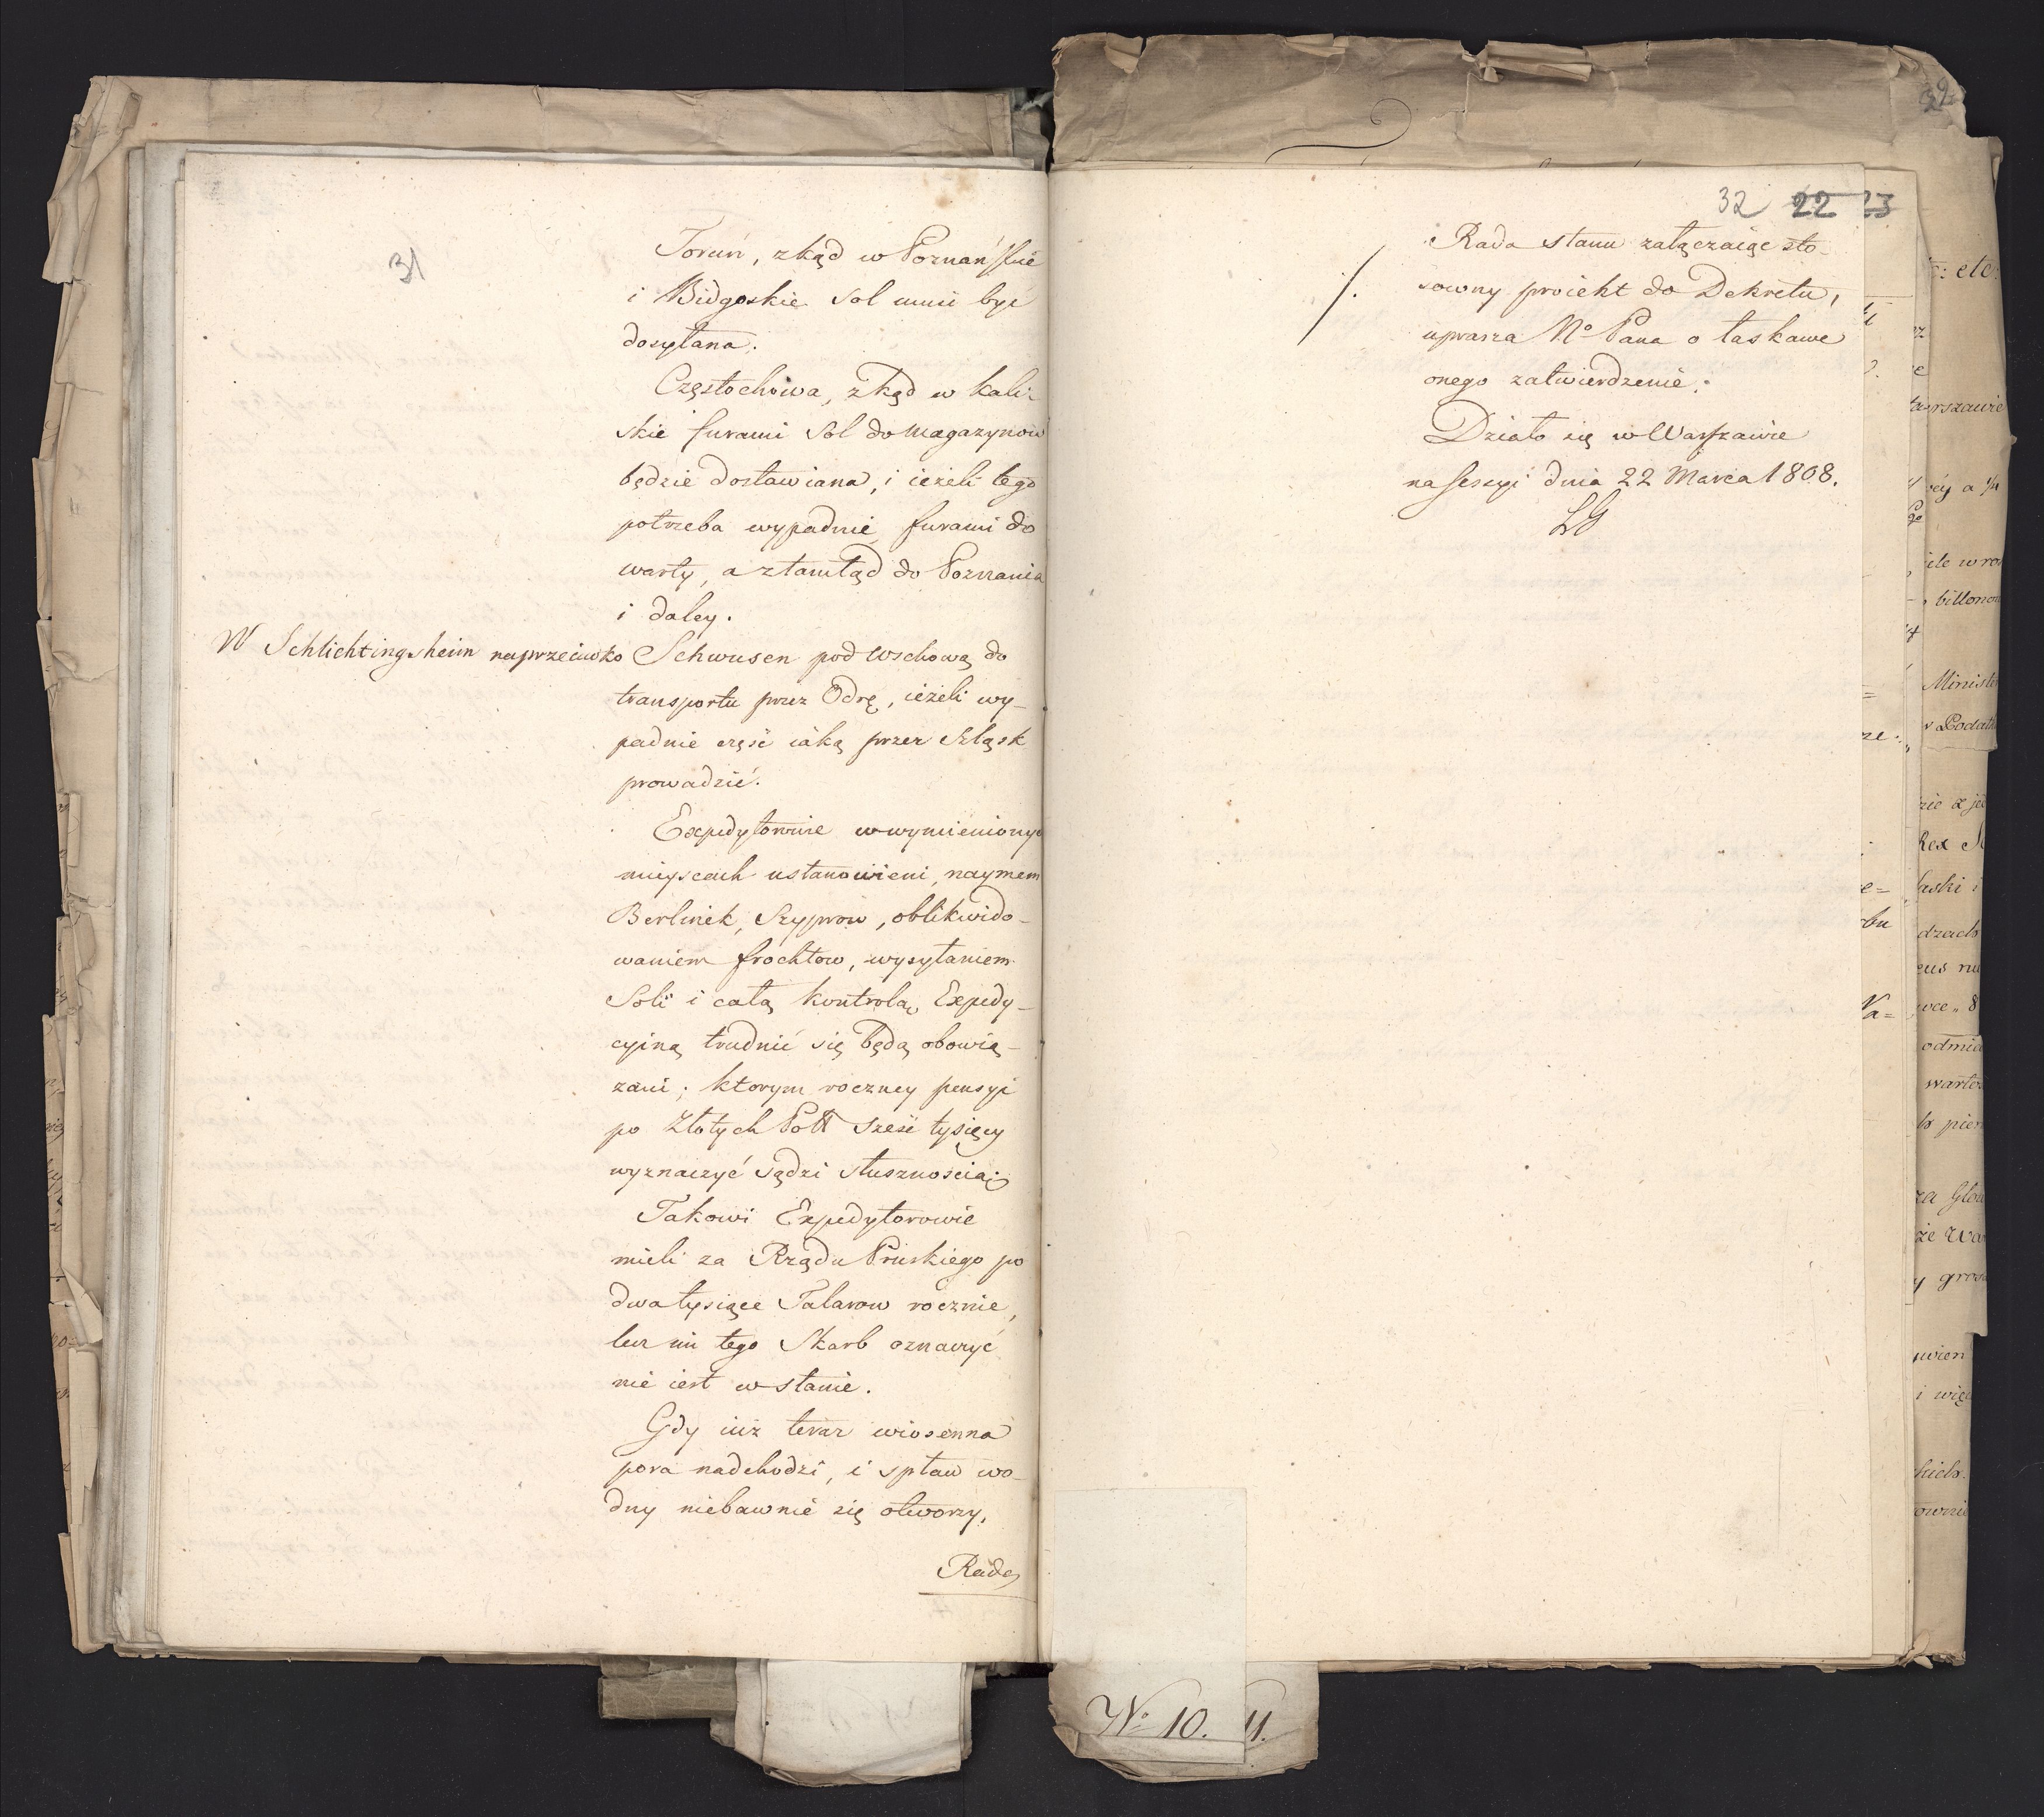 31
Toruń, zkąd w Poznańskie
i Bidgoskie Sol musi być
dosyłana.
Częstochowa, zkąd w Kali-
skie furami Sol do Magazynow
będzie dostawiana, i ieżeli tego
potrzeba wypadnie, furami do
warty, a ztamtąd do Poznania
i daley.
W Schlichtingsheim naprzeciwko Schwusen pod Wschową do
transportu przez Odrę, ieżeli wy-
padnie część iaką przez Szląsk
prowadzić.
Expedytorowie w wymienionych
mieyscach ustanowieni, naymem
Berlinek, Szyprow, oblikwido-
waniem frochtow, wysyłaniem
Soli i całą kontrolą Expedy-
cyiną trudnić się będą obowią-
zani; ktorym roczney pensyi
po Złotych Poll sześć tysięcy
wyznaczyć sądzi słusznością;
Takowi Expedytorowie
mieli za Rządu Pruskiego po
dwa tysiące Talarow rocznie,
lecz im tego Skarb oznaczyć
nie iest w stanie.
Gdy iuż teraz wiosenna
pora nadchodzi, i spław wo-
dny niebawnie się otworzy,
Rada
32
32 22 23
Rada stanu załączaiąc sto-
sowny proiekt do Dekretu,
uprasza No Pana o łaskawe
onego zatwierdzenie.
Działo się w Warszawie
na Sessyi dnia 22 Marca 1808.
LG
No 10. 11.